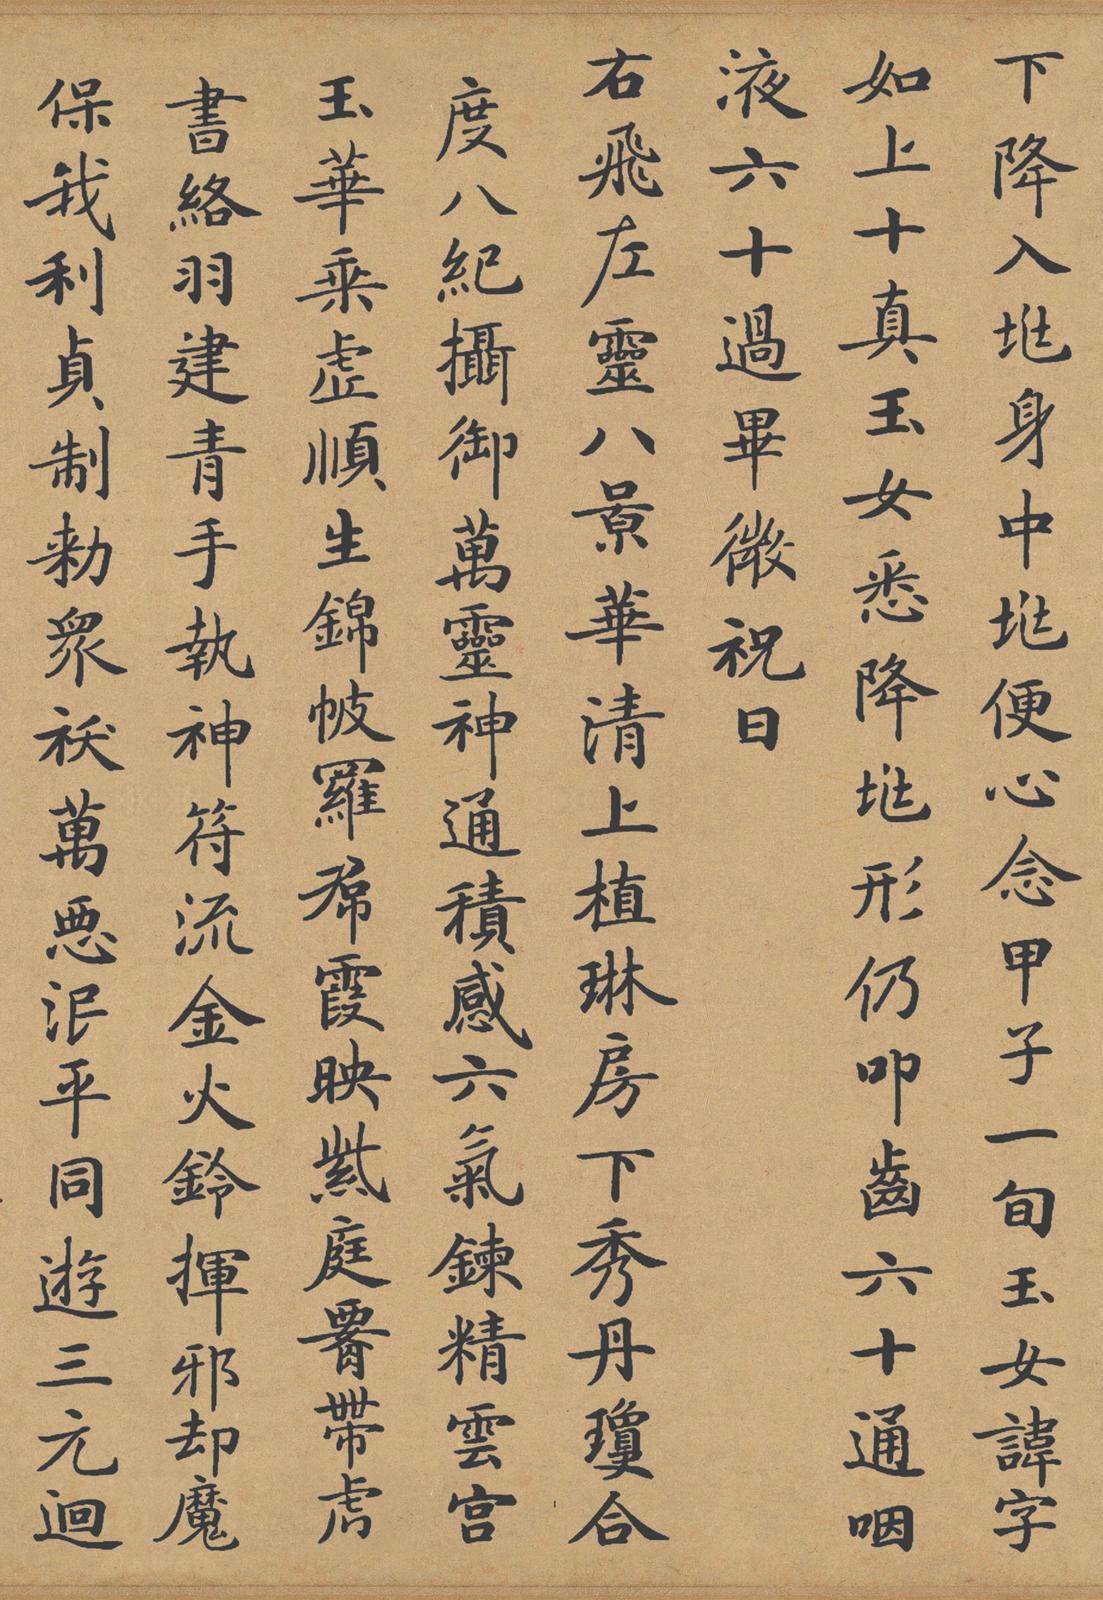 下降入地身中地便心念甲子一旬玉女諱字
如上十真玉女悉降地形仍叩齒六十通咽
液六十過畢微祝曰
右飛左靈八景華清上植琳房下秀丹瓊合
度八紀攝御萬靈神通積感六氣鍊精雲宮
玉華乘虛順生錦帔羅帬霞映紫庭腰帶虎
書絡羽建青手執神符流金火鈴揮邪却魔
保我利貞制勑眾祅萬惡泯平同遊三元迴